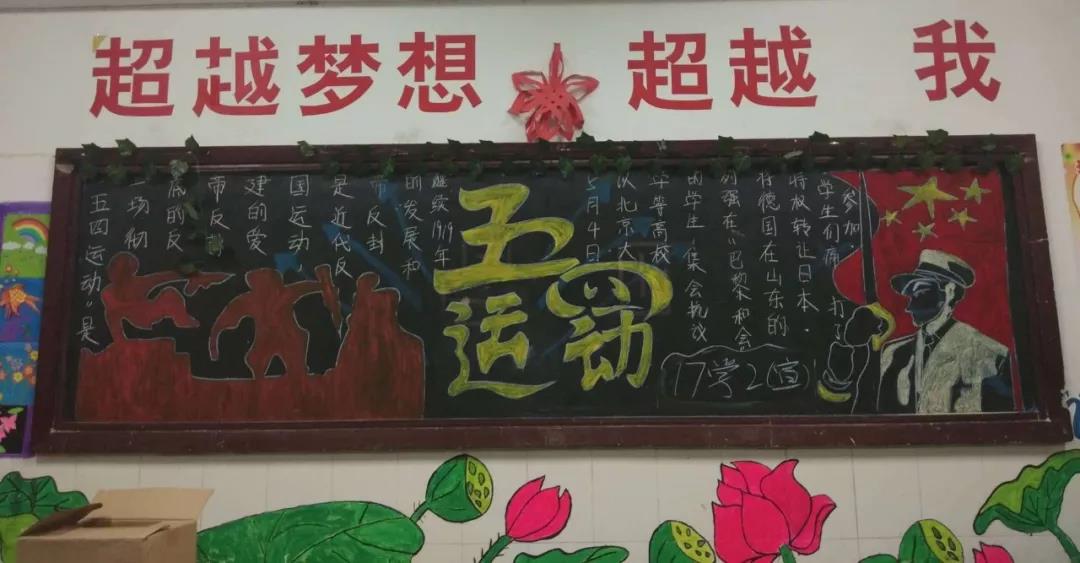 超越梦想 超越 我
五四运动"是
一场彻
底的反
帝反
建的爱
国运动,
是近代反
帝反封
的发展和
继续1919年
五四
运动
5月4日
以北京大
华等高校
的学生,集会抗议
列强在"巴黎和会
将德国在山东的
特权转让日本.
学生们痛
打了
参加
17学2(宣)